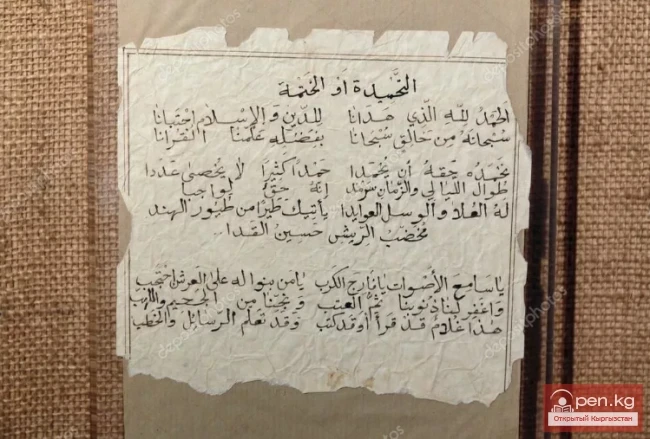 التَّحْمِيدَة أو الخَتْمَة
الحَمْدُ للهِ الَّذي هَدَانا للدِّينِ وَالإسْلام اجْتَبانا
سُبْحانهُ مِن خَالقٍ سُبْحَانا بفَضْلِهِ عَلَّمَنا القُرآنا
نحْمدُه حقهُ أن يُحْمدا حَمْدًا كثيرًا لا يُحْصى عَدَدا
طُوال الليالي والزّمان سَرْمد إنَّهُ حَقٌّ لواجبا
لهُ العُلا والوسل العوايدا يأتيك طيرًا من طيُور الهند
مخضب الرّيش حسين القدا...
يا سَامعَ الأصْوات يا فارج الكرب يامن بنوا له على العرش احتجب
وَاغفر لنا ذنوبنا ثمّ العيب ونجّنا من الجحيم واللهب
هذا غلام قد قرأ أو قد كتب وَقد تعلم الرّسائل والخطب
depositphotos
Open.kg
Открытый Кыргызстан